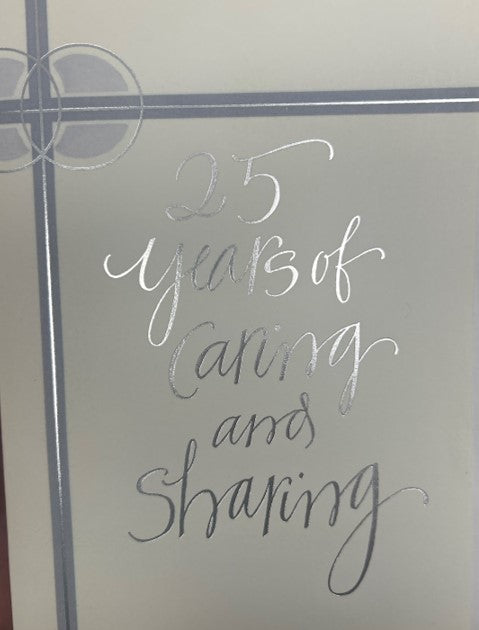 25
years of
Caring
and
Sharing